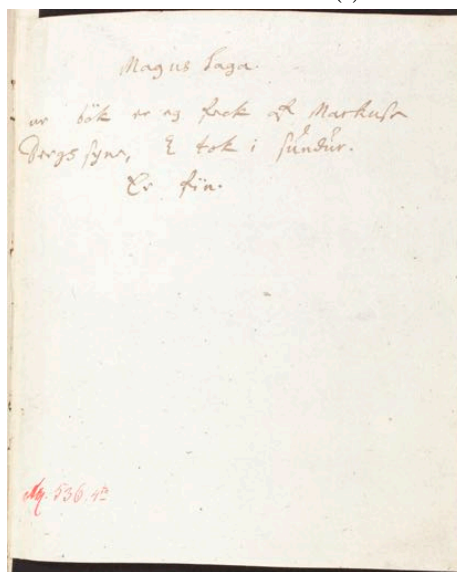 Magus Saga.
ur bók er eg feck af Markuse
Bergs syne, & tok i sundur.
Er fin.
AM. 536. 4to